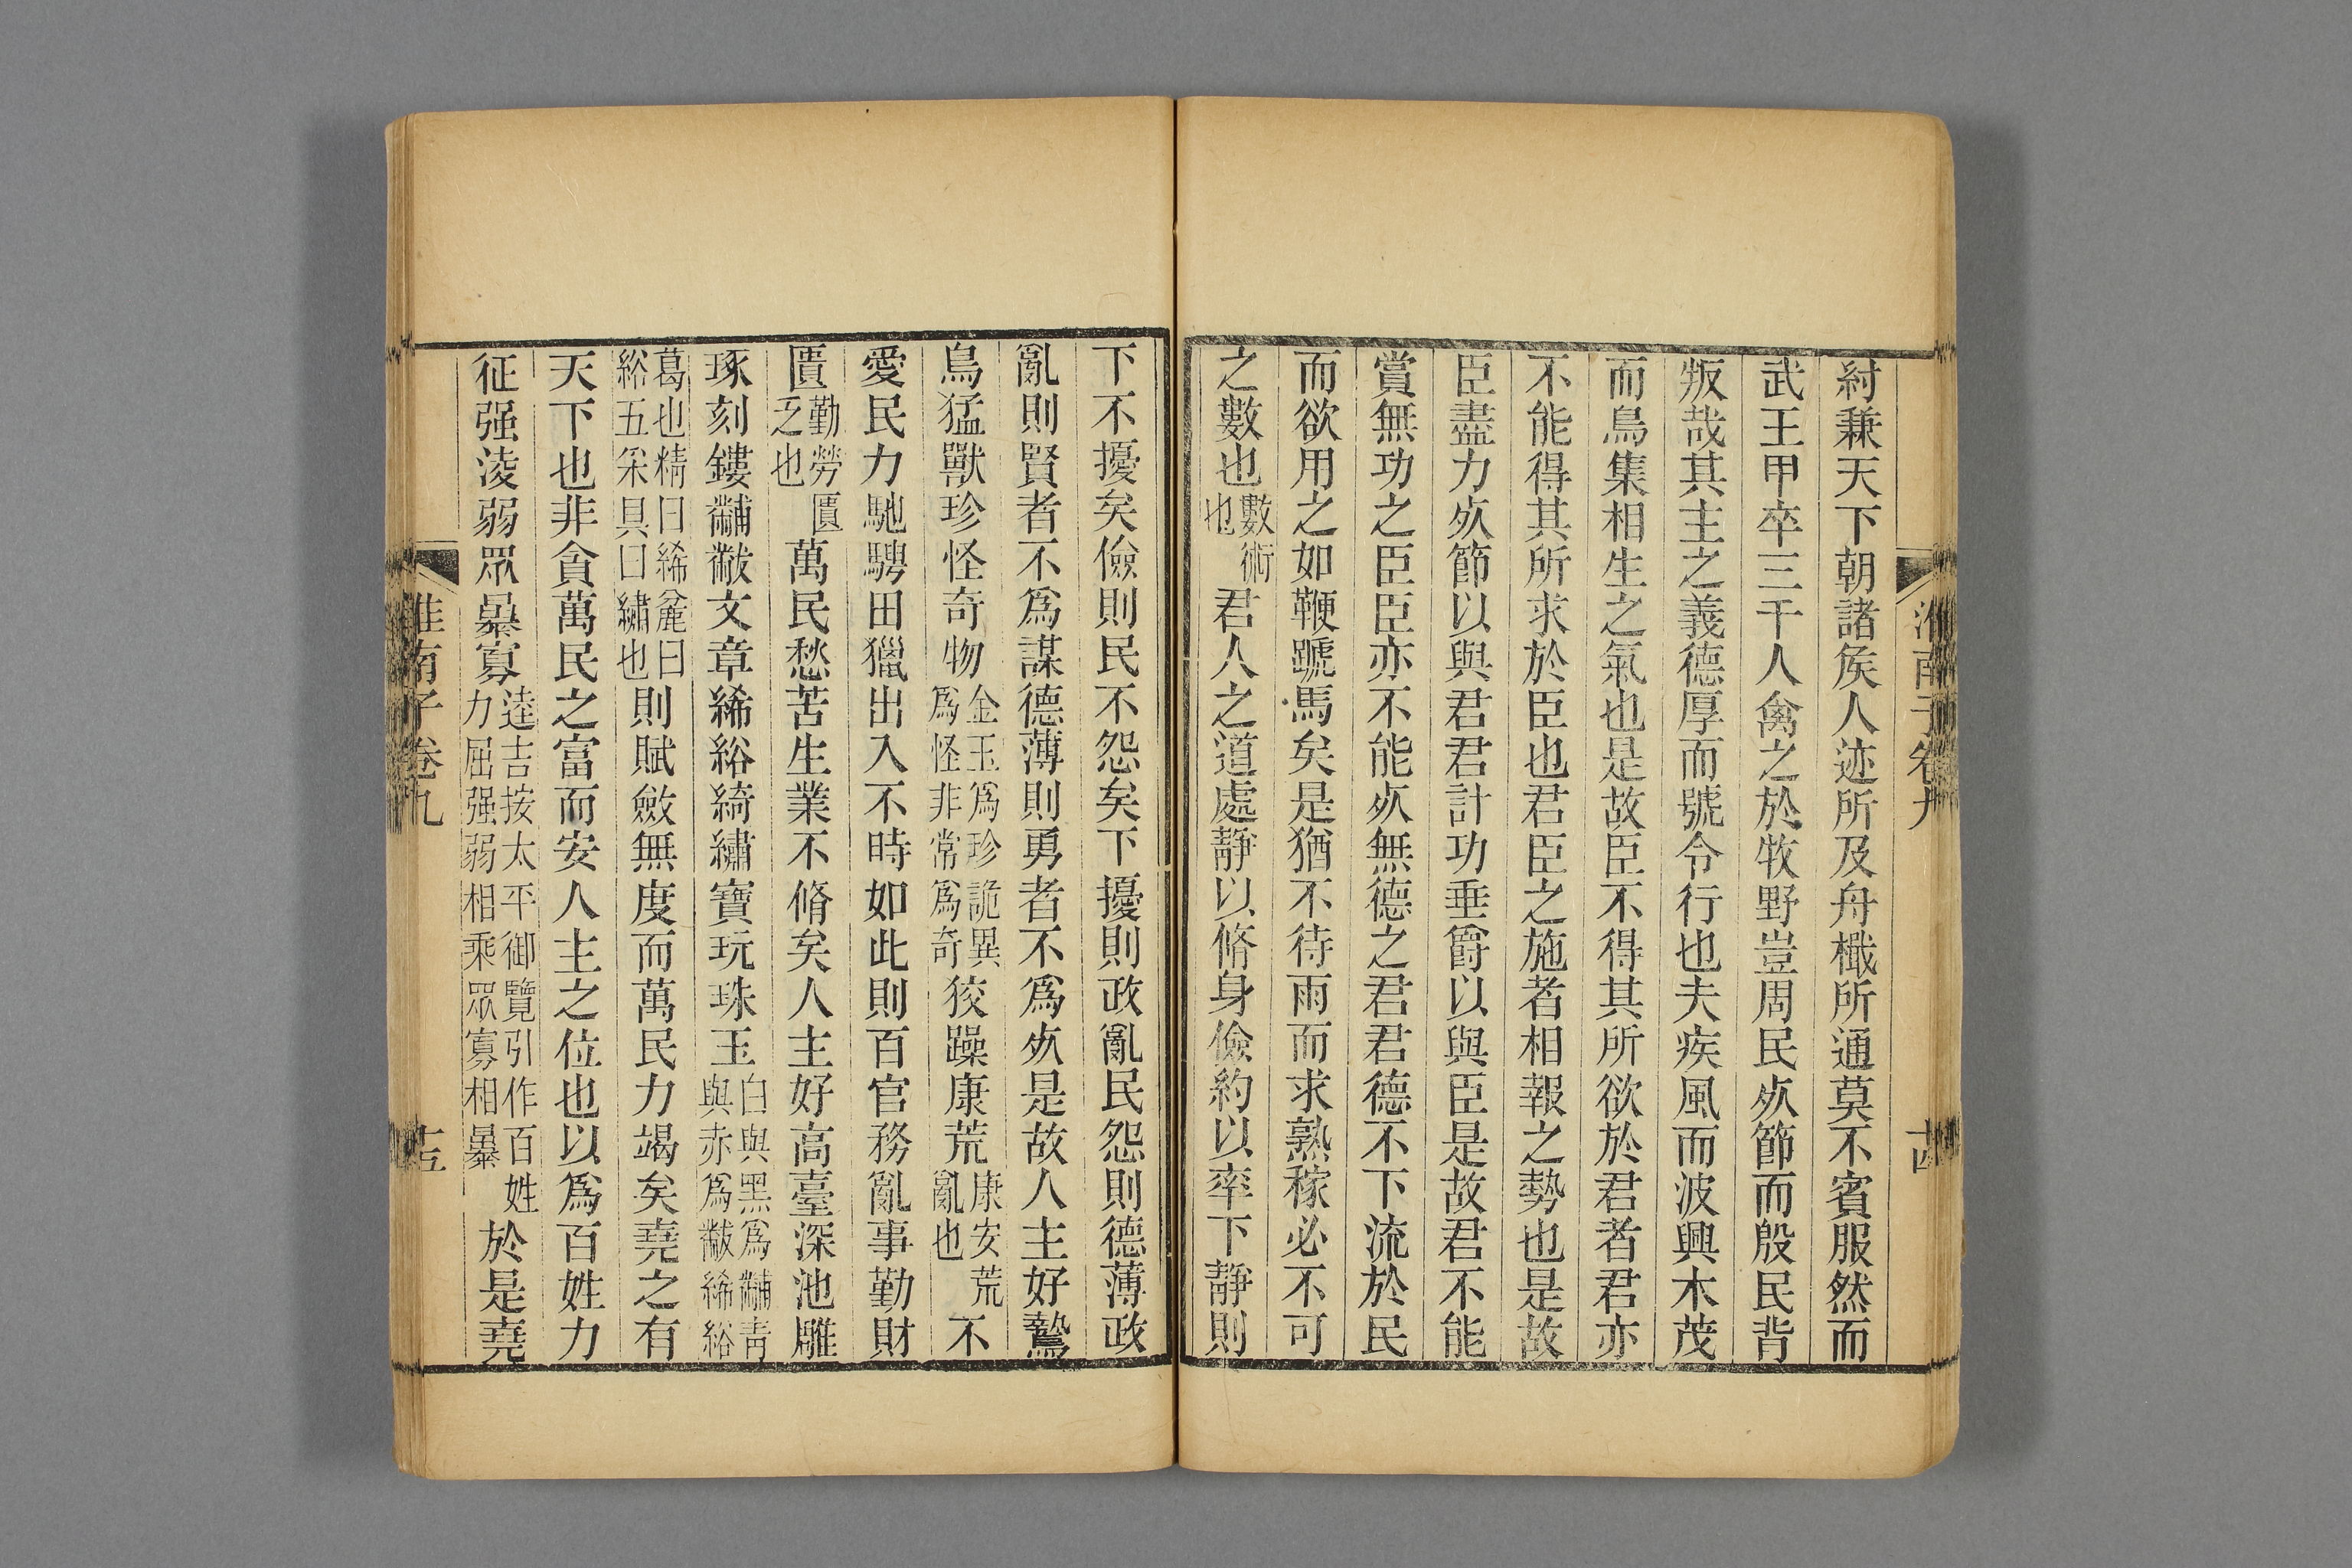 淮南子卷九
十四
紂兼天下朝諸矦人迹所及舟檝所通莫不賓服然而
武王甲卒三千人禽之於牧野豈周民㱙節而殷民背
叛哉其主之義德厚而號令行也夫疾風而波興木茂
而鳥集相生之氣也是故臣不得其所欲於君者君亦
不能得其所求於臣也君臣之施者相報之勢也是故
臣盡力㱙節以與君君計功垂爵以與臣是故君不能
賞無功之臣臣亦不能㱙無德之君君德不下流於民
而欲用之如鞭蹏馬矣是猶不待雨而求熟稼必不可
之數也數術也君人之道處靜以脩身儉約以率下靜則
下不擾矣儉則民不怨矣下擾則政亂民怨則德薄政
亂則賢者不爲謀德薄則勇者不爲㱙是故人主好鷙
鳥猛獸珍怪奇物金玉爲珍詭異爲怪非常爲奇狡躁康荒康安荒亂也不
愛民力馳騁田獵出入不時如此則百官務亂事勤財
匱勤勞匱乏也萬民愁苦生業不脩矣人主好高臺深池雕
琢刻鏤黼黻文章絺綌綺繡寶玩珠玉白與黑爲黼青與赤爲黻絺綌
葛也精曰絺麄曰綌五采具曰繡也則賦斂無度而萬民力竭矣堯之有
天下也非貪萬民之富而安人主之位也以爲百姓力
征强淩弱眾暴寡逵吉按太平御覽引作百姓力屈强弱相乘眾寡相暴於是堯
淮南子卷九
十五